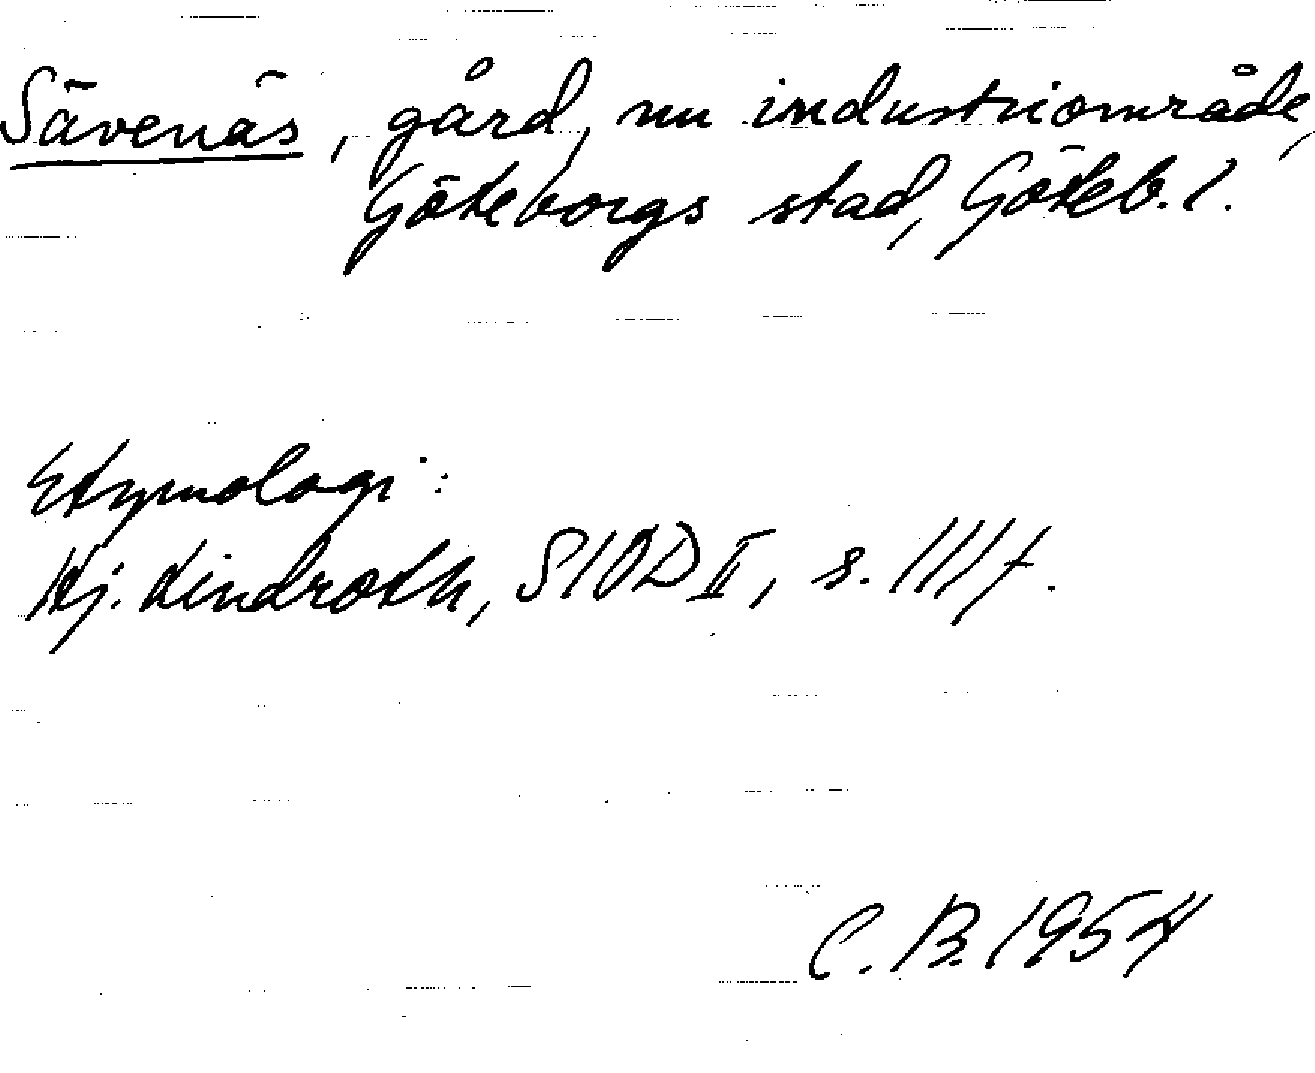 Sävenäs, gård, nu industriområde,
Göteborgs stad, Göteb. l.
Etymologi:
Hj. Lindroth, SIOD II, s. 111 f.
C. B. 1954